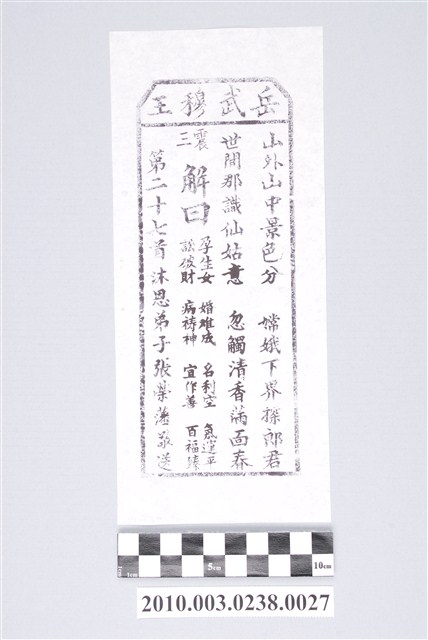 岳武穆王
山外山中景色分　嫦娥下界探郎君
世間那識仙姑意　忽觸清香滿面春
震三
解曰
孕生女　婚難成　名利空　急選平
訟破財　病禱神　宜作善　百福臻
第二十七首　沐恩弟子張藩敬送
1cm 5cm 10cm
2010.003.0238.0027